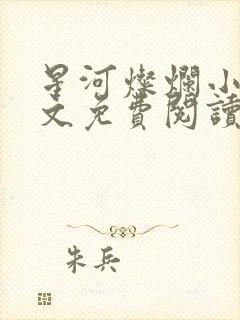 星河燦爛小
文免費閱讀
朱兵